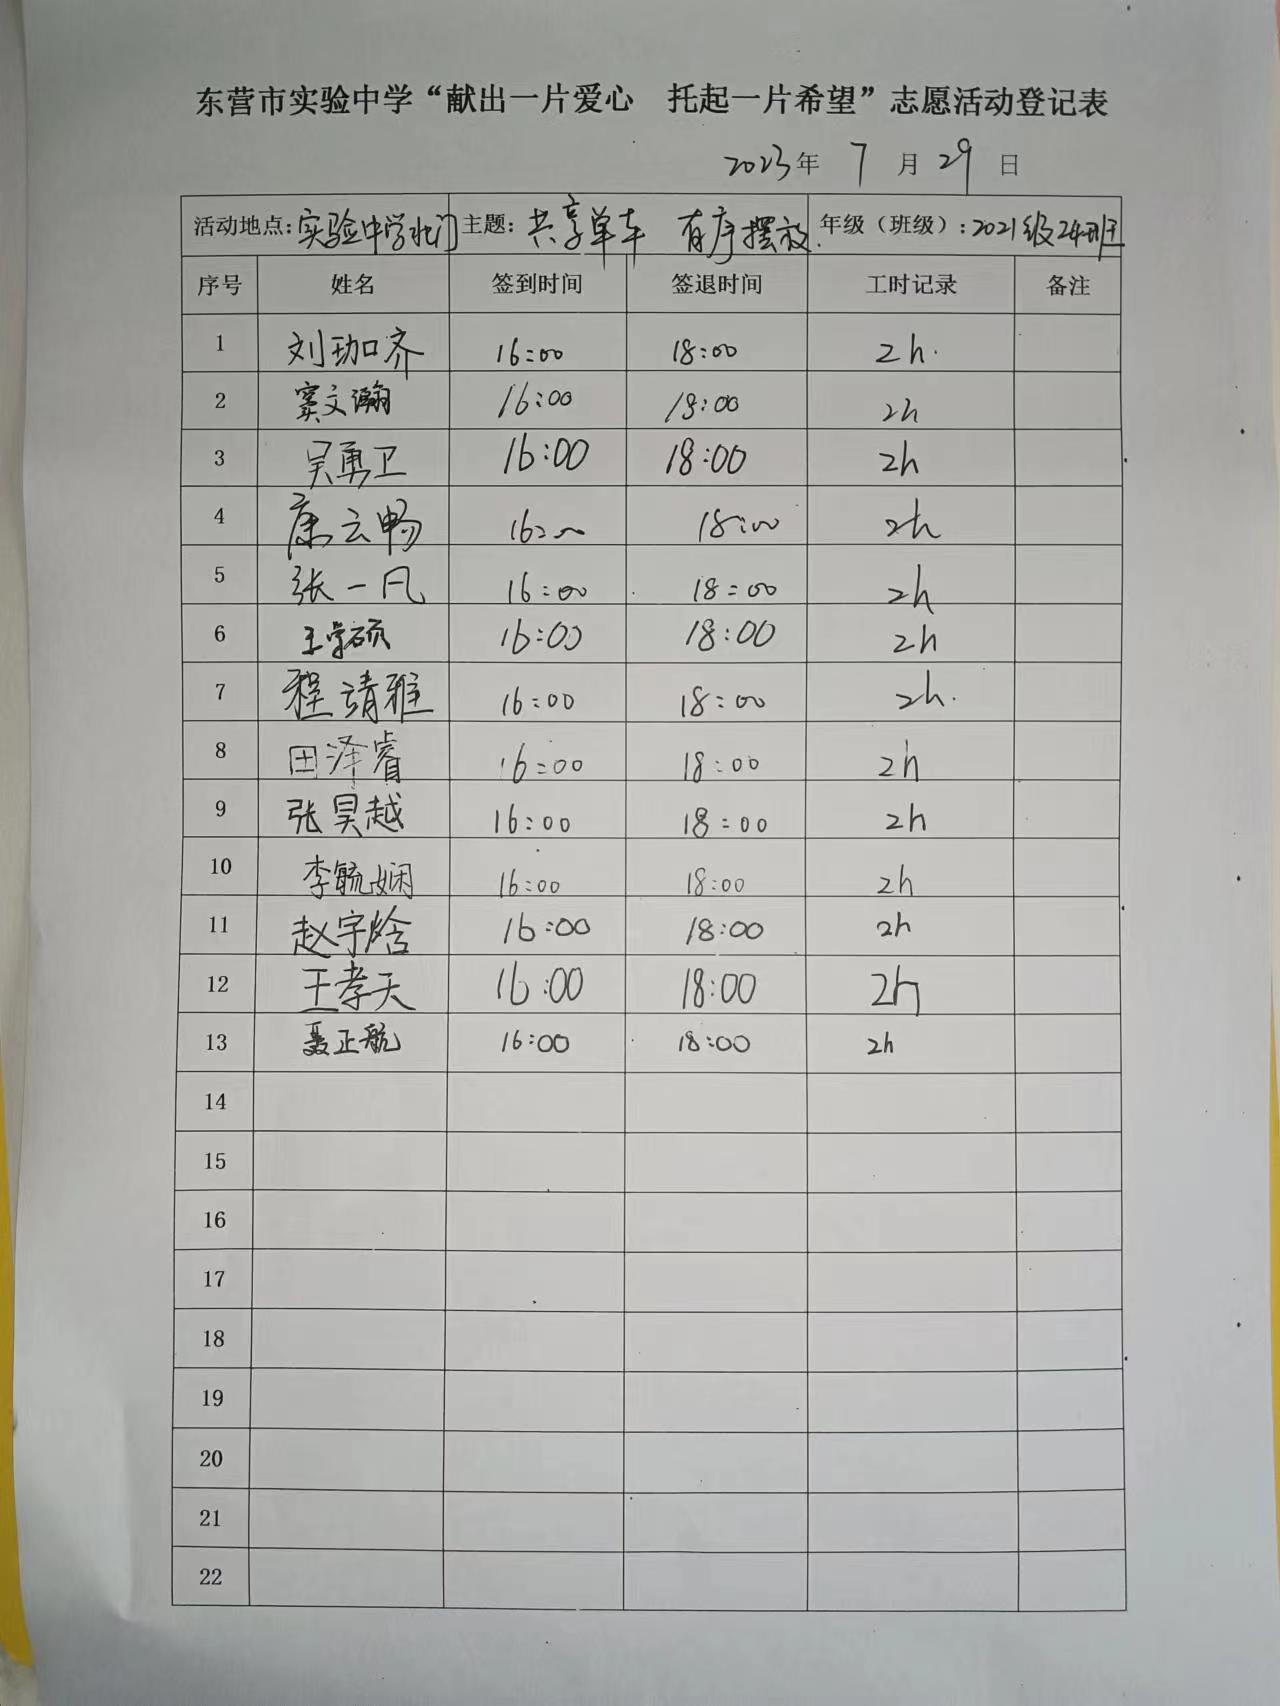 东营市实验中学“献出一片爱心 托起一片希望”志愿活动登记表
2023年 7 月 29 日
活动地点:实验中学北门 主题:共享单车 有序摆放. 年级（班级）:2021级24班
序号 姓名 签到时间 签退时间 工时记录 备注
1 刘珈齐 16:00 18:00 2h.
2 窦文瀚 16:00 18:00 2h
3 吴勇卫 16:00 18:00 2h
4 康云畅 16:00 18:00 2h
5 张一凡 16:00 18:00 2h
6 王学硕 16:00 18:00 2h
7 程靖雅 16:00 18:00 2h.
8 田泽睿 16:00 18:00 2h
9 张昊越 16:00 18:00 2h
10 李毓娴 16:00 18:00 2h
11 赵宇焓 16:00 18:00 2h
12 王孝天 16:00 18:00 2h
13 聂正航 16:00 18:00 2h
14
15
16
17
18
19
20
21
22